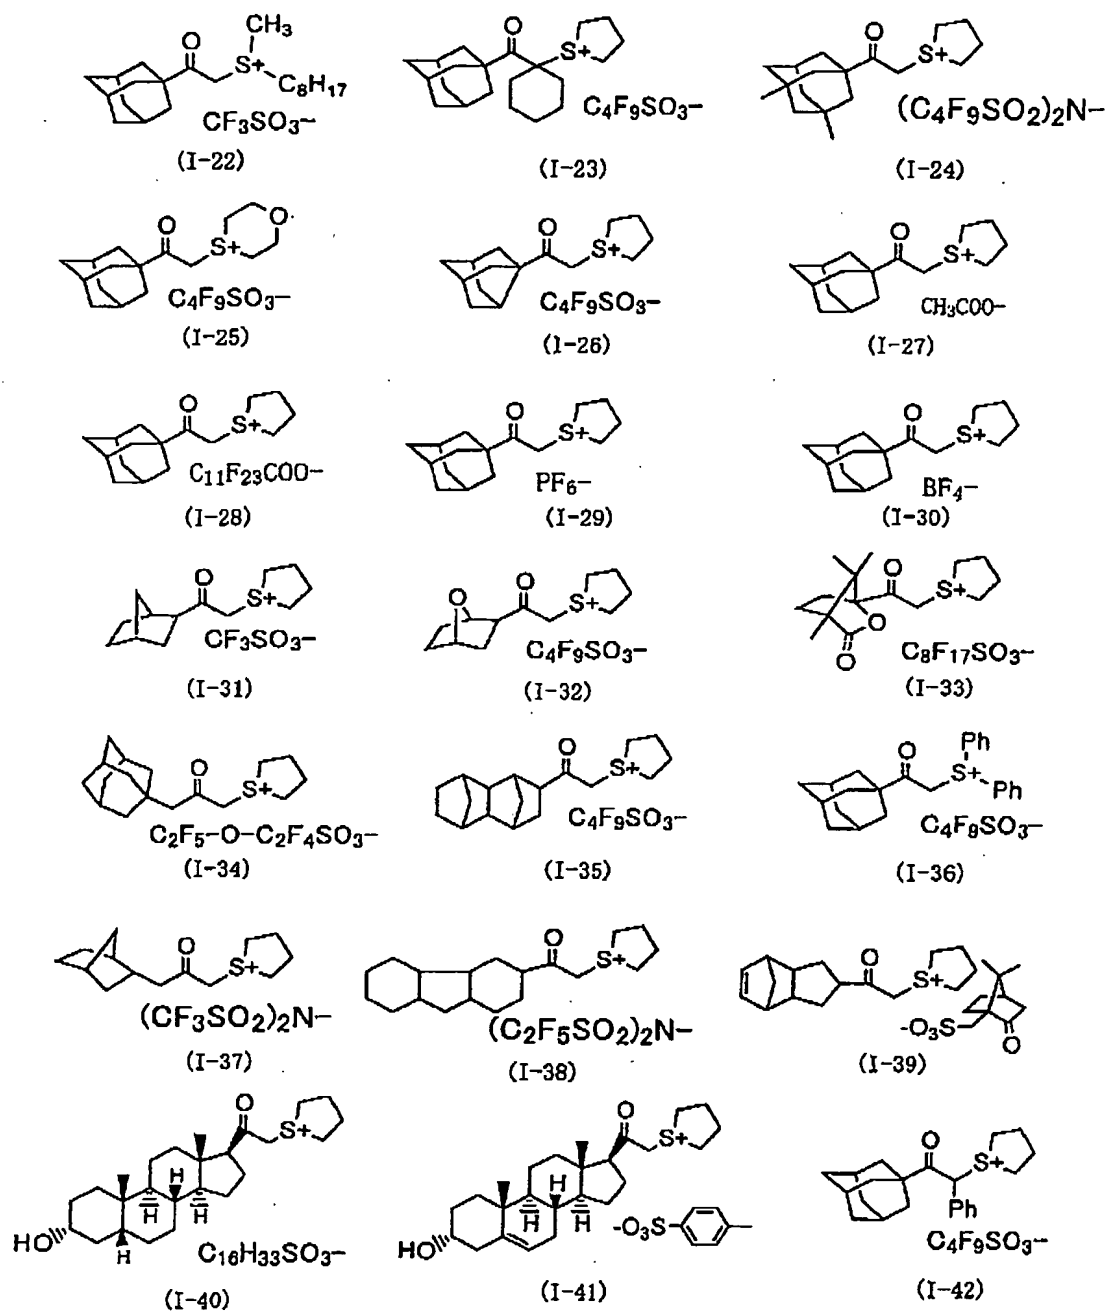 O CH3 S+ C8H17
CF3SO3−
(I-22)
O S+
C4F9SO3−
(I-23)
O S+
(C4F9SO2)2N−
(I-24)
O S+ O
C4F9SO3−
(I-25)
O S+
C4F9SO3−
(I-26)
O S+
CH3COO−
(I-27)
O S+
C11F23COO−
(I-28)
O S+
PF6−
(I-29)
O S+
BF4−
(I-30)
O S+
CF3SO3−
(I-31)
O O S+
C4F9SO3−
(I-32)
O S+ O O
C8F17SO3−
(I-33)
O S+
C2F5−O−C2F4SO3−
(I-34)
O S+
C4F9SO3−
(I-35)
O Ph S+ Ph
C4F9SO3−
(I-36)
O S+
(CF3SO2)2N−
(I-37)
O S+
(C2F5SO2)2N−
(I-38)
O S+
-O3S O
(I-39)
O S+
H H H
HO H
C16H33SO3−
(I-40)
O S+
H H H
HO
-O3S
(I-41)
O S+
Ph
C4F9SO3−
(I-42)